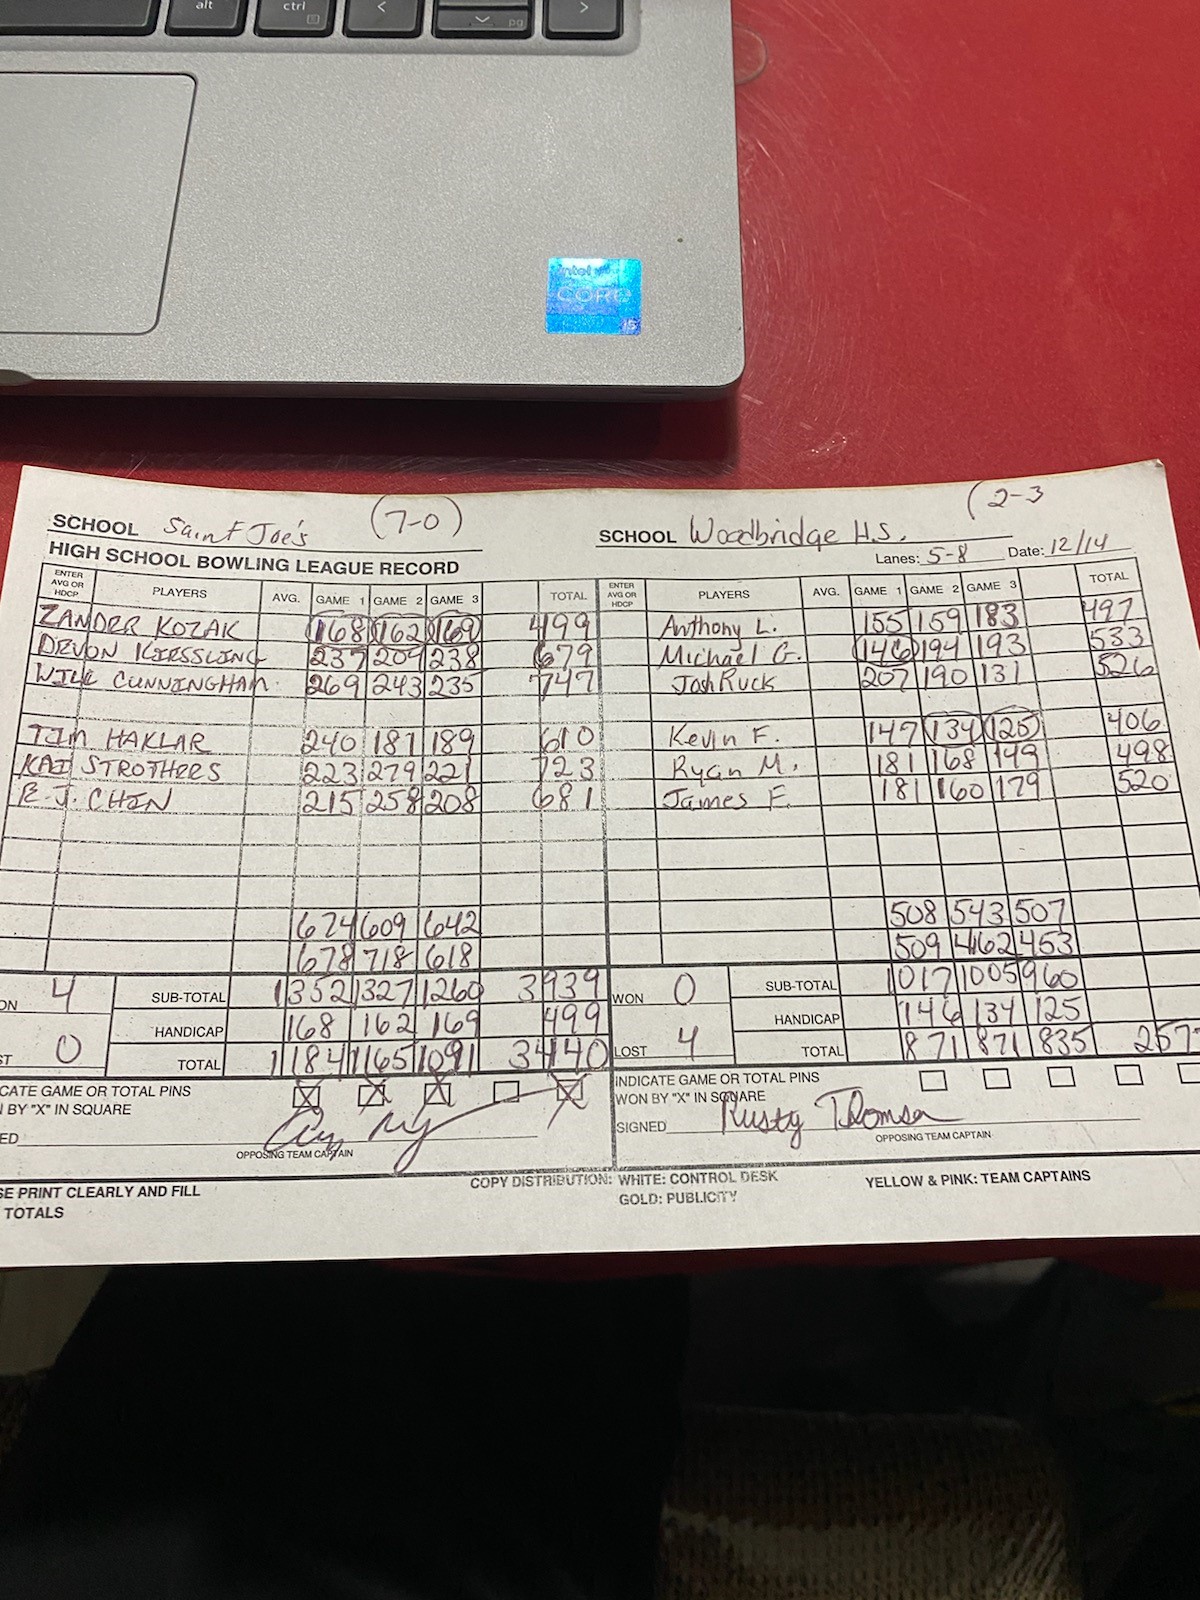 alt ctrl < pg >
intel
CORE
i5
SCHOOL Saint Joe's (7-0)
SCHOOL Woodbridge H.S. (2-3
HIGH SCHOOL BOWLING LEAGUE RECORD
Lanes: 5-8 Date: 12/14
ENTER AVG OR HDCP PLAYERS AVG. GAME 1 GAME 2 GAME 3 TOTAL ENTER AVG OR HDCP PLAYERS AVG. GAME 1 GAME 2 GAME 3 TOTAL
ZANDER KOZAK 168 162 169 499 Anthony L. 155 159 183 497
DEVON KIESSLING 237 204 238 679 Michael G. 146 194 193 533
WILL CUNNINGHAM 269 243 235 747 Josh Ruck 207 190 131 526
TIM HAKLAR 240 181 189 610 Kevin F. 147 134 125 406
KAI STROTHERS 223 279 221 723 Ryan M. 181 168 149 498
R.J. CHIN 215 258 208 681 James F. 181 160 179 520
674 609 642 508 543 507
678 718 618 509 462 453
ON 4 SUB-TOTAL 1352 1327 1260 3939 WON 0 SUB-TOTAL 1017 1005 960
HANDICAP 168 162 169 499 HANDICAP 146 134 125
ST 0 TOTAL 1184 1165 1091 3440 LOST 4 TOTAL 871 871 835 257
CATE GAME OR TOTAL PINS INDICATE GAME OR TOTAL PINS
BY "X" IN SQUARE WON BY "X" IN SQUARE
ED SIGNED Rusty Thomsen
OPPOSING TEAM CAPTAIN OPPOSING TEAM CAPTAIN
SE PRINT CLEARLY AND FILL COPY DISTRIBUTION: WHITE: CONTROL DESK YELLOW & PINK: TEAM CAPTAINS
TOTALS GOLD: PUBLICITY